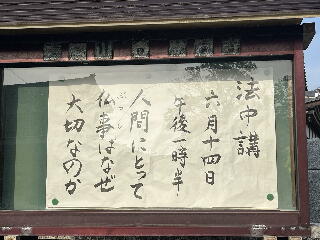 法中講
六月十四日
午後一時半
人間にとって
仏事はなぜ
大切なのか